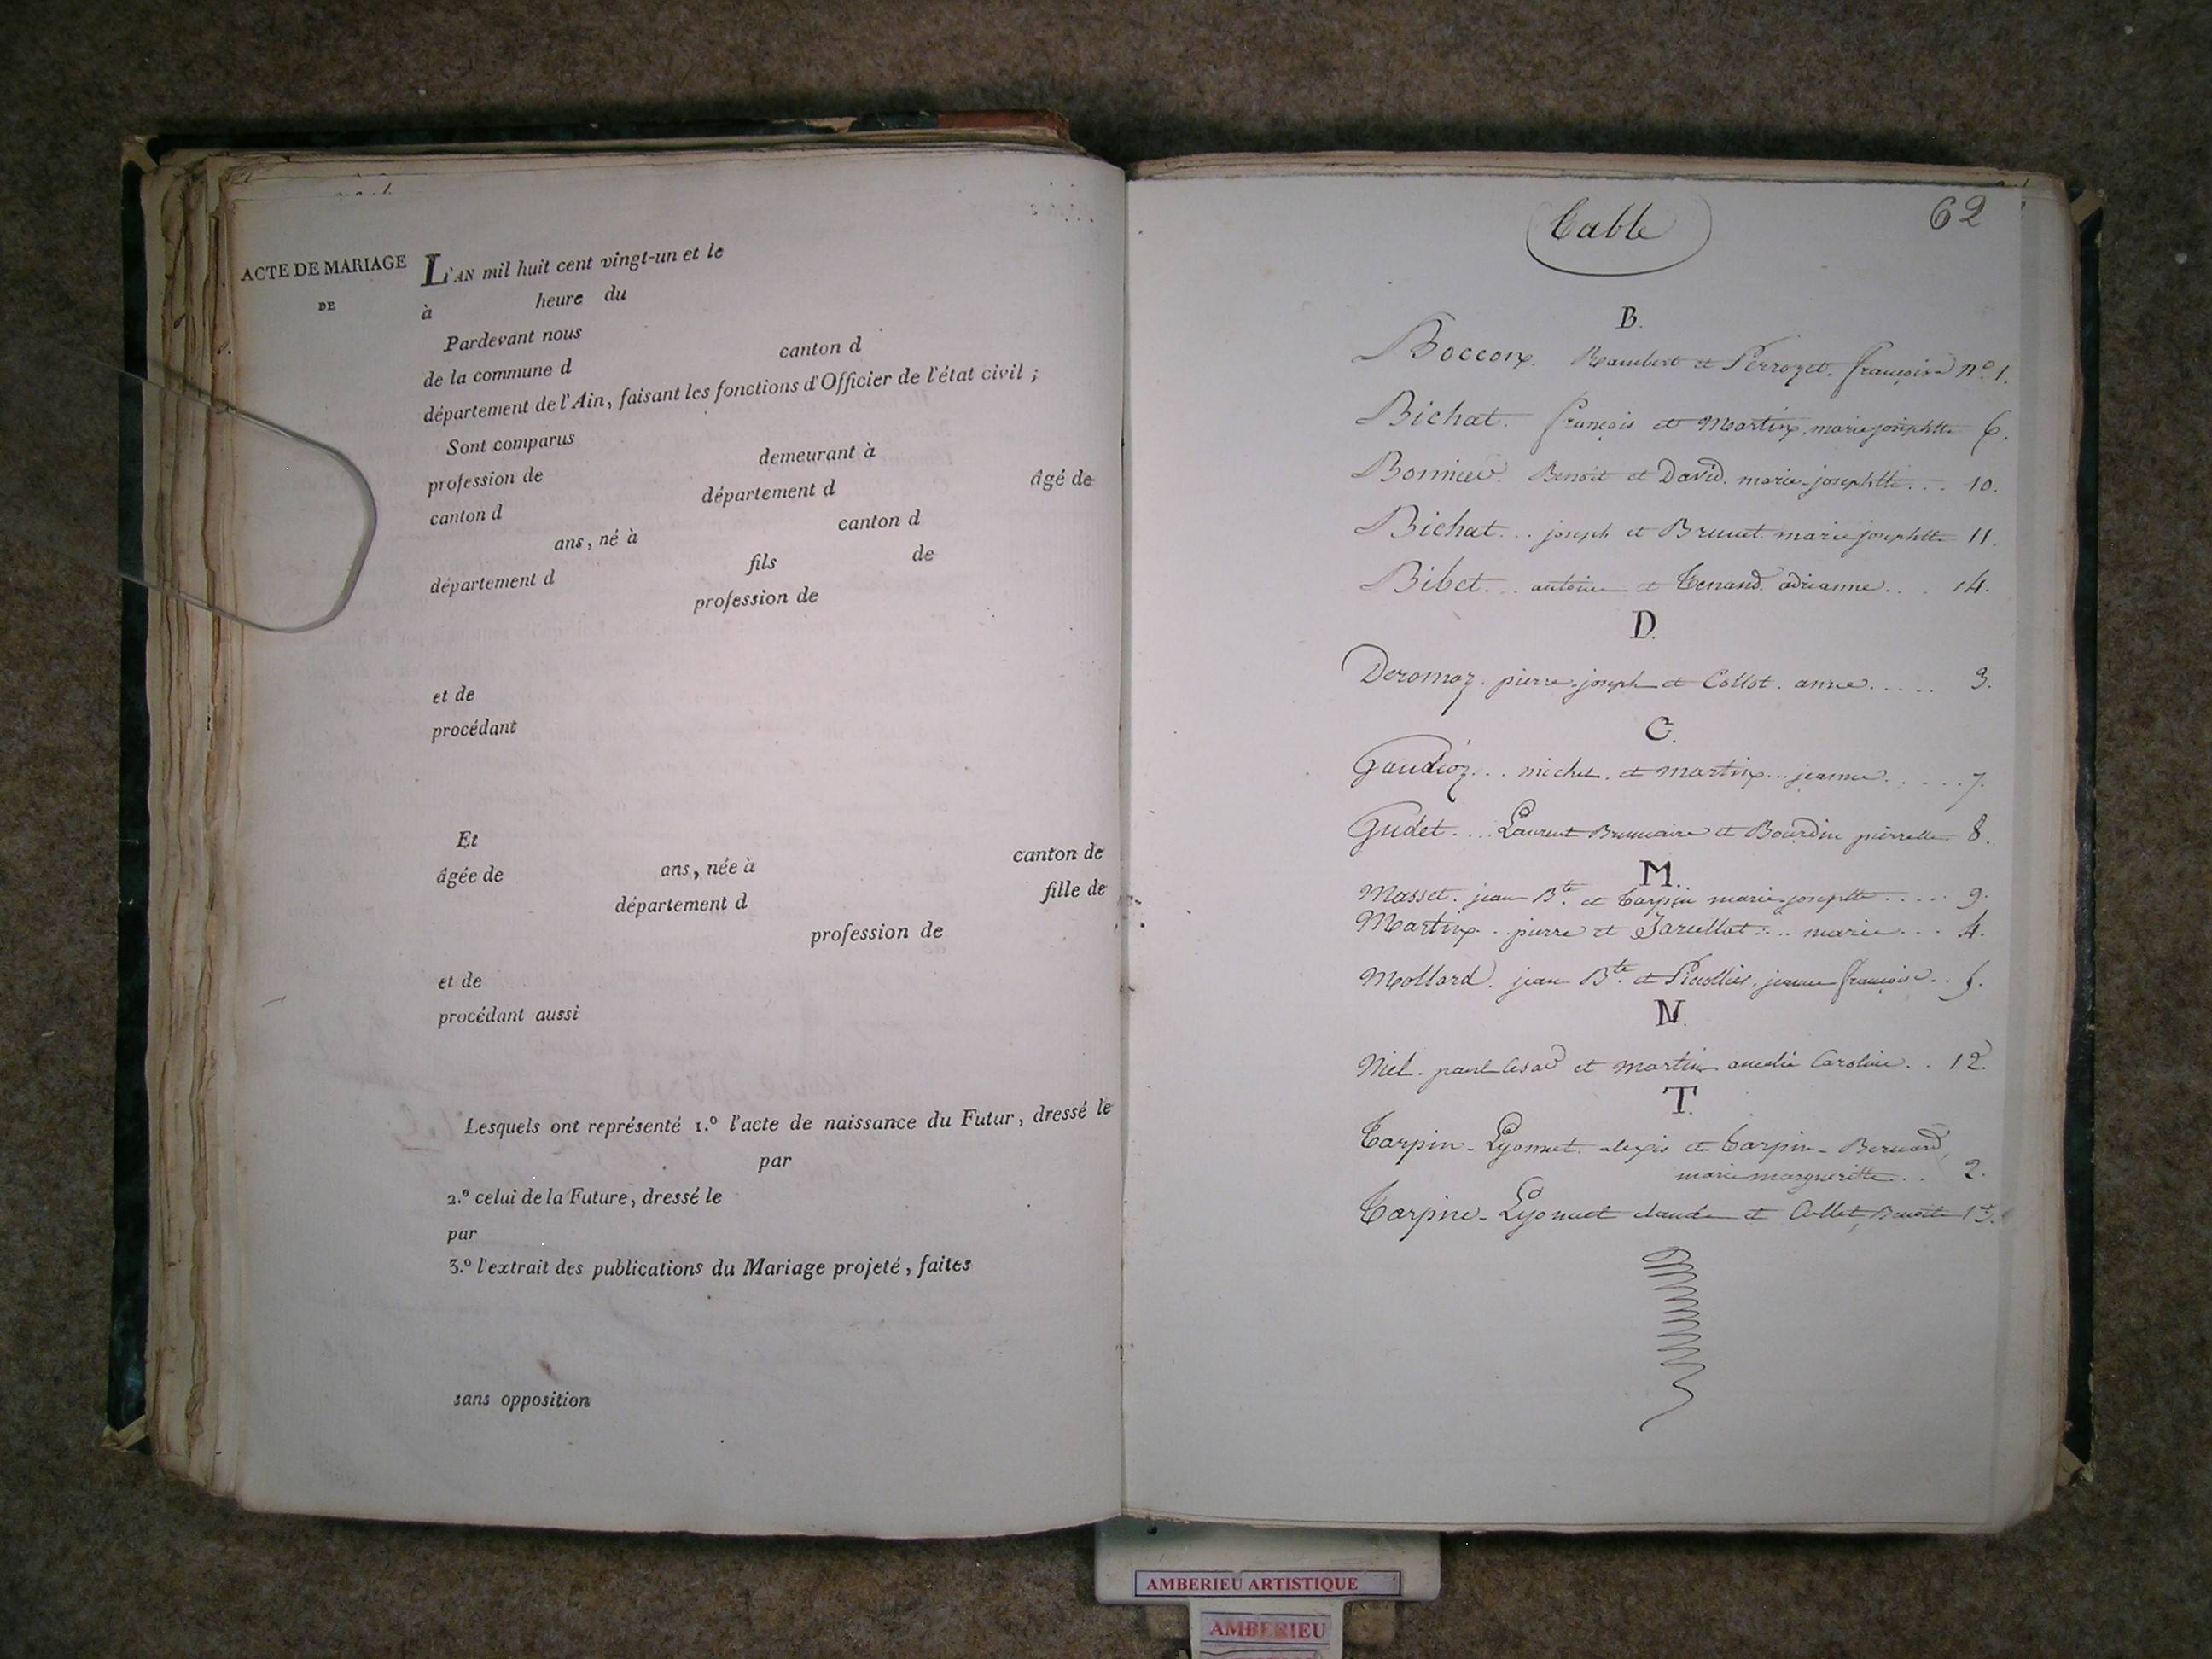 ACTE DE MARIAGE
DE
L'AN mil huit cent vingt-un et le
à heure du
Pardevant nous
de la commune d canton d
département de l'Ain, faisant les fonctions d'Officier de l'état civil ;
Sont comparus
profession de demeurant à
canton d département d âgé de
ans, né à canton d
département d fils de
profession de
et de
procédant
Et
âgée de ans, née à canton de
département d fille de
profession de
et de
procédant aussi
Lesquels ont représenté 1.º l'acte de naissance du Futur, dressé le
par
2.º celui de la Future, dressé le
par
3.º l'extrait des publications du Mariage projeté, faites
sans opposition
62
Table
B.
Boccon. Rambert et Perrozet. françoise nº 1.
Bichat. françois et Martin, marie josephtte 6.
Bonnier. Benoit et David. marie-josephtte... 10.
Bichat... joseph et Brunet. marie josephtte 11.
Bibet... antoine et Tenand. adrianne... 14.
D.
Deromoz. pierre-joseph et Collot. anne..... 3.
G.
Gaudioz... michel. et martin... jeanne..... 7.
Gudet.... Laurent Brumaire et Bourdin pierrette 8.
M.
Masset. jean Bte. et Tarpin marie josephtte..... 9.
Martin... pierre et marie... 4.
Mollard. jean Bte. et jeanne françoise..
N.
Niel. paul Cesar et martin amelie Caroline.. 12.
T.
Tarpin-Lyonnet. alexis et Tarpin-Bernard,
marie marguerite.. 2.
Tarpin-Lyonnet claude et Collet, Benoite 13.
AMBERIEU ARTISTIQUE
AMBERIEU